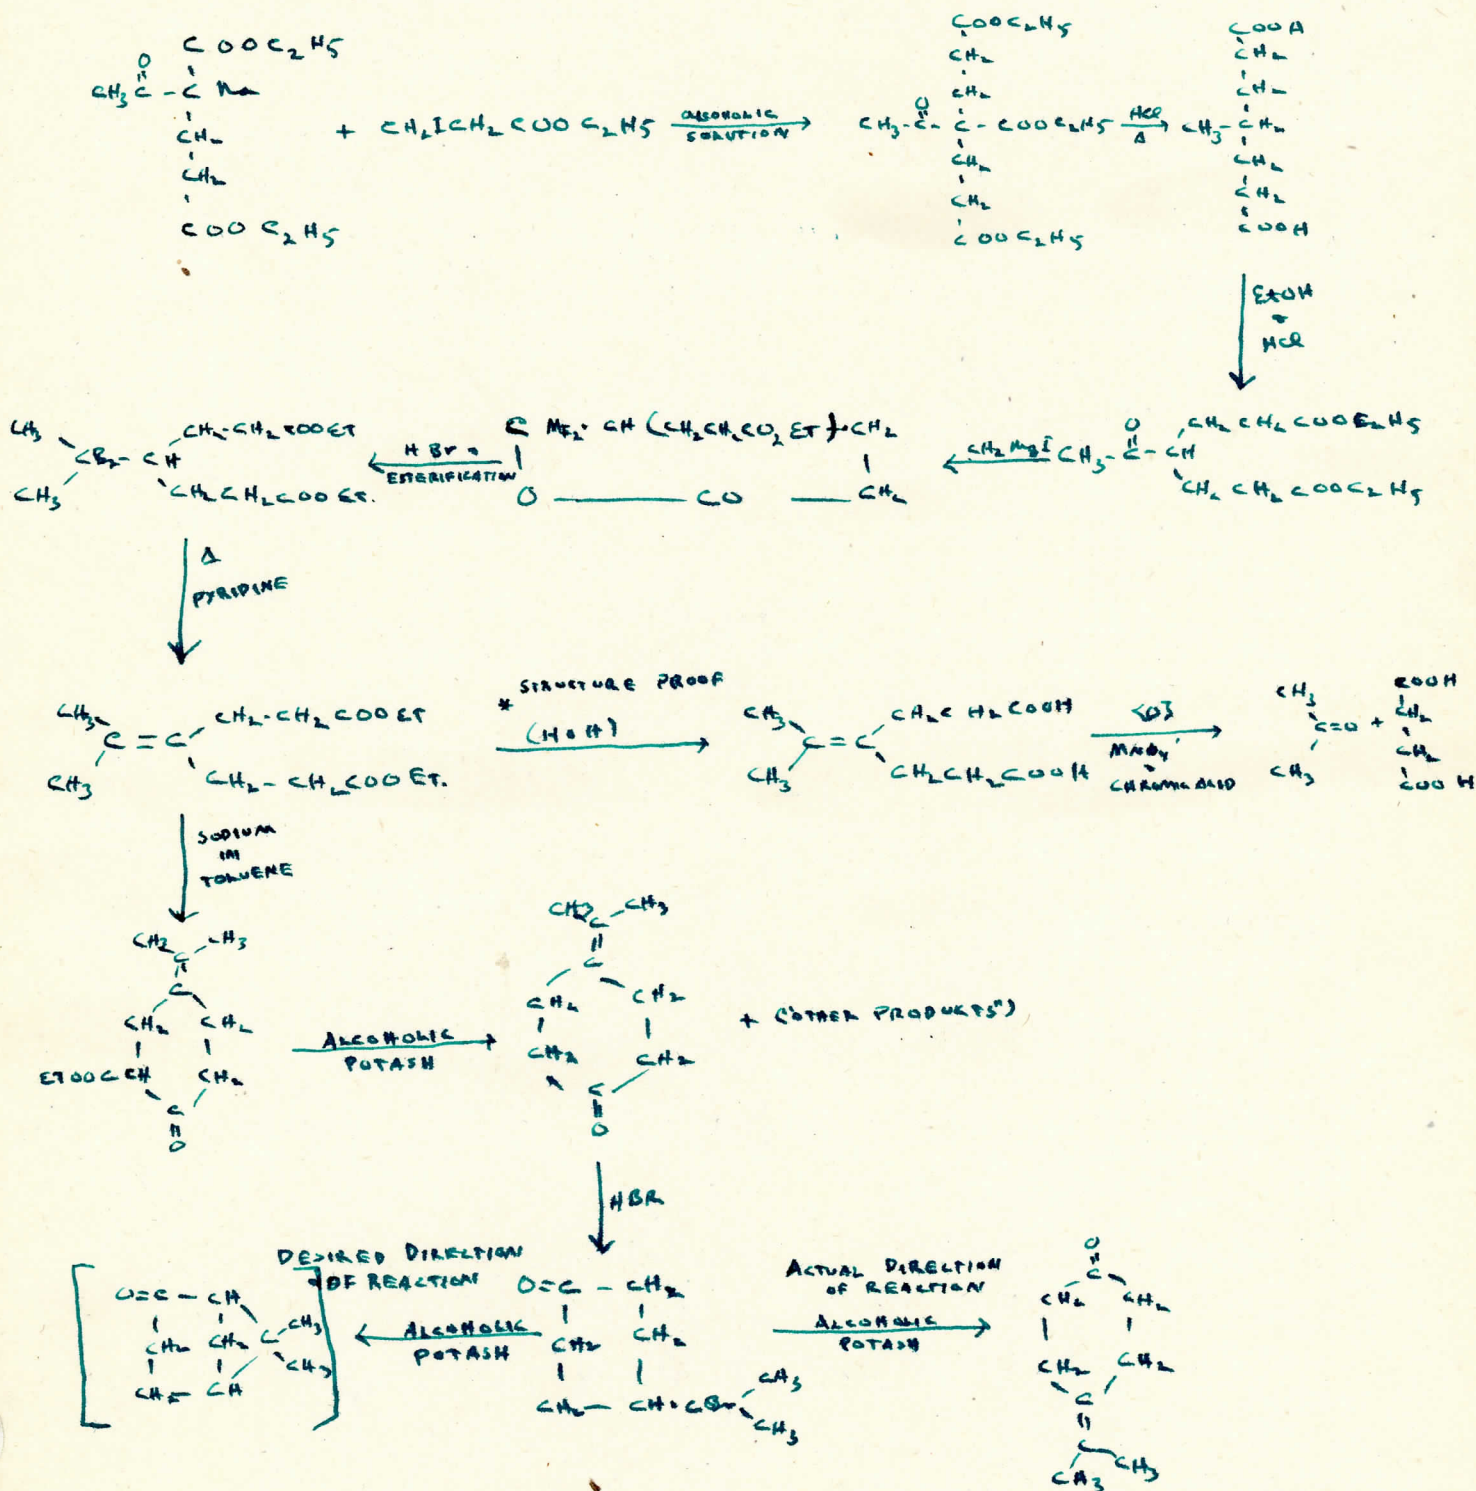 COOC₂H₅
O
CH₃C - C Na
CH₂
CH₂
COOC₂H₅
+ CH₂ICH₂COOC₂H₅
ALCOHOLIC
SOLUTION
COOC₂H₅
CH₂
CH₂
O
CH₃-C-C-COOC₂H₅
CH₂
CH₂
COOC₂H₅
HCl
Δ
COOH
CH₂
CH₂
CH₃-CH₂
CH₂
CH₂
COOH
EtOH
+
HCl
CH₃
CH₂-CH₂COOET
CBr-CH
CH₃
CH₂CH₂COOET.
HBr +
ESTERIFICATION
C Me₂·CH(CH₂CH₂CO₂ET)·CH₂
O — CO — CH₂
CH₃MgI
O
CH₃-C-CH
CH₂CH₂COOC₂H₅
CH₂CH₂COOC₂H₅
Δ
PYRIDINE
CH₃
CH₂-CH₂COOET
C=C
CH₃
CH₂-CH₂COOET.
* STRUCTURE PROOF
(HOH)
CH₃
CH₂CH₂COOH
C=C
CH₃
CH₂CH₂COOH
[O]
CHROMIC ACID
CH₃
C=O +
CH₃
COOH
CH₂
CH₂
COOH
SODIUM
IN
TOLUENE
CH₃ CH₃
C
C
CH₂ CH₂
ETOOCCH CH₂
C
O
ALCOHOLIC
POTASH
CH₃ CH₃
C
C
CH₂ CH₂
CH₂ CH₂
C
O
+ ("OTHER PRODUCTS")
HBR
DESIRED DIRECTION
OF REACTION
ALCOHOLIC
POTASH
O=C - CH
CH₃
CH₂ CH₂ C
CH₃
CH₂- CH
O=C - CH₂
CH₂ CH₂
CH₃
CH₂- CH·CBr
CH₃
ACTUAL DIRECTION
OF REACTION
ALCOHOLIC
POTASH
O
C
CH₂ CH₂
CH₂ CH₂
C
C
CH₃ CH₃